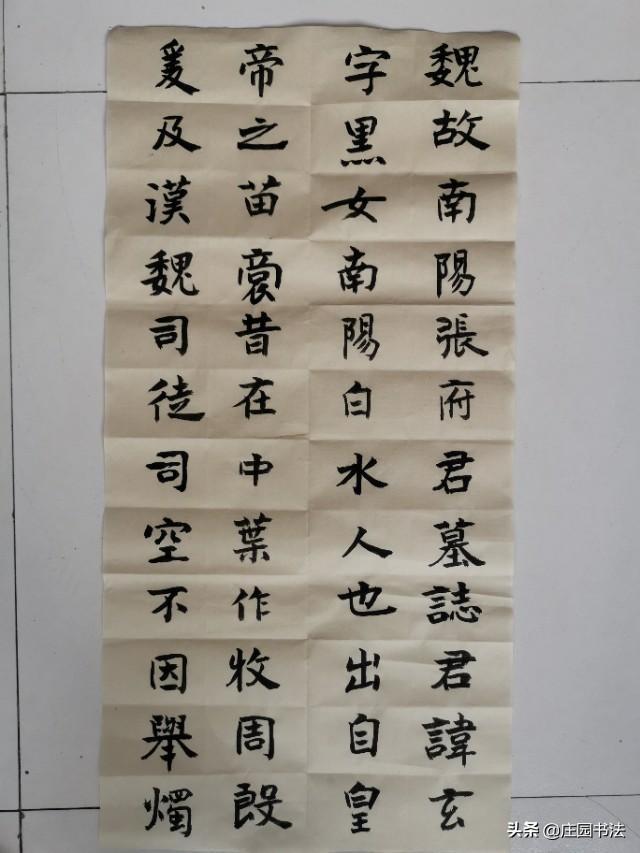 魏故南陽張府君墓誌君諱玄
字黑女南陽白水人也出自皇
帝之苗裔昔在中葉作牧周殷
爰及漢魏司徒司空不因舉燭
头条 @庄园书法